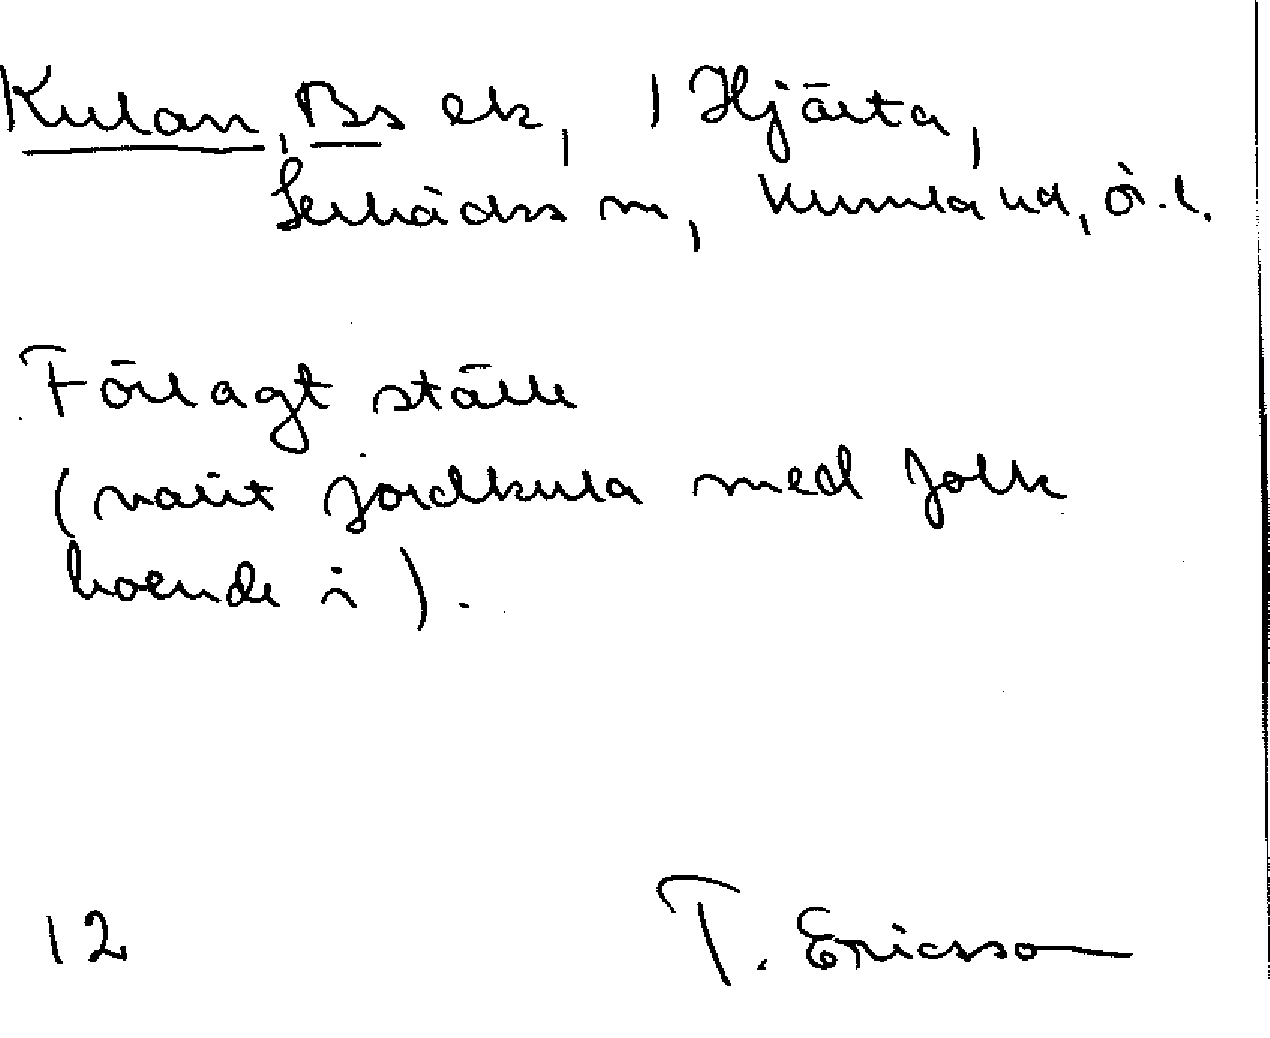 Kulan, Bs ek, 1 Hjärta,
Gerhādss m, Kumla hd, ö.l.
Förlagt ställe
(varit jordkula med folk
boende i).
12 T. Ericsson